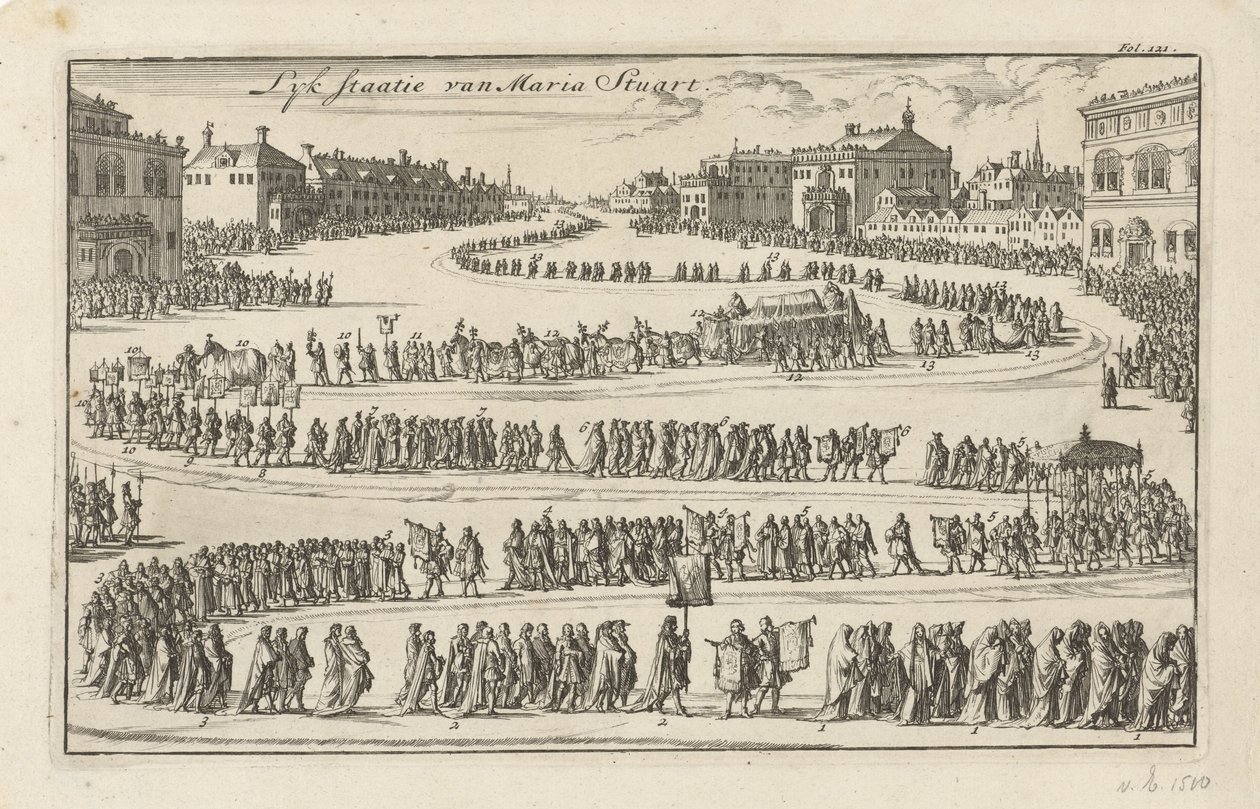 Fol. 121.
Lyk staatie van Maria Stuart.
13
13 13
13
12
10 10 11 12
10 13 13
12
10 7 7 6 6 6 5
10 9 8 5
3 4 4 5 5
3
3 2 2 1 1 1